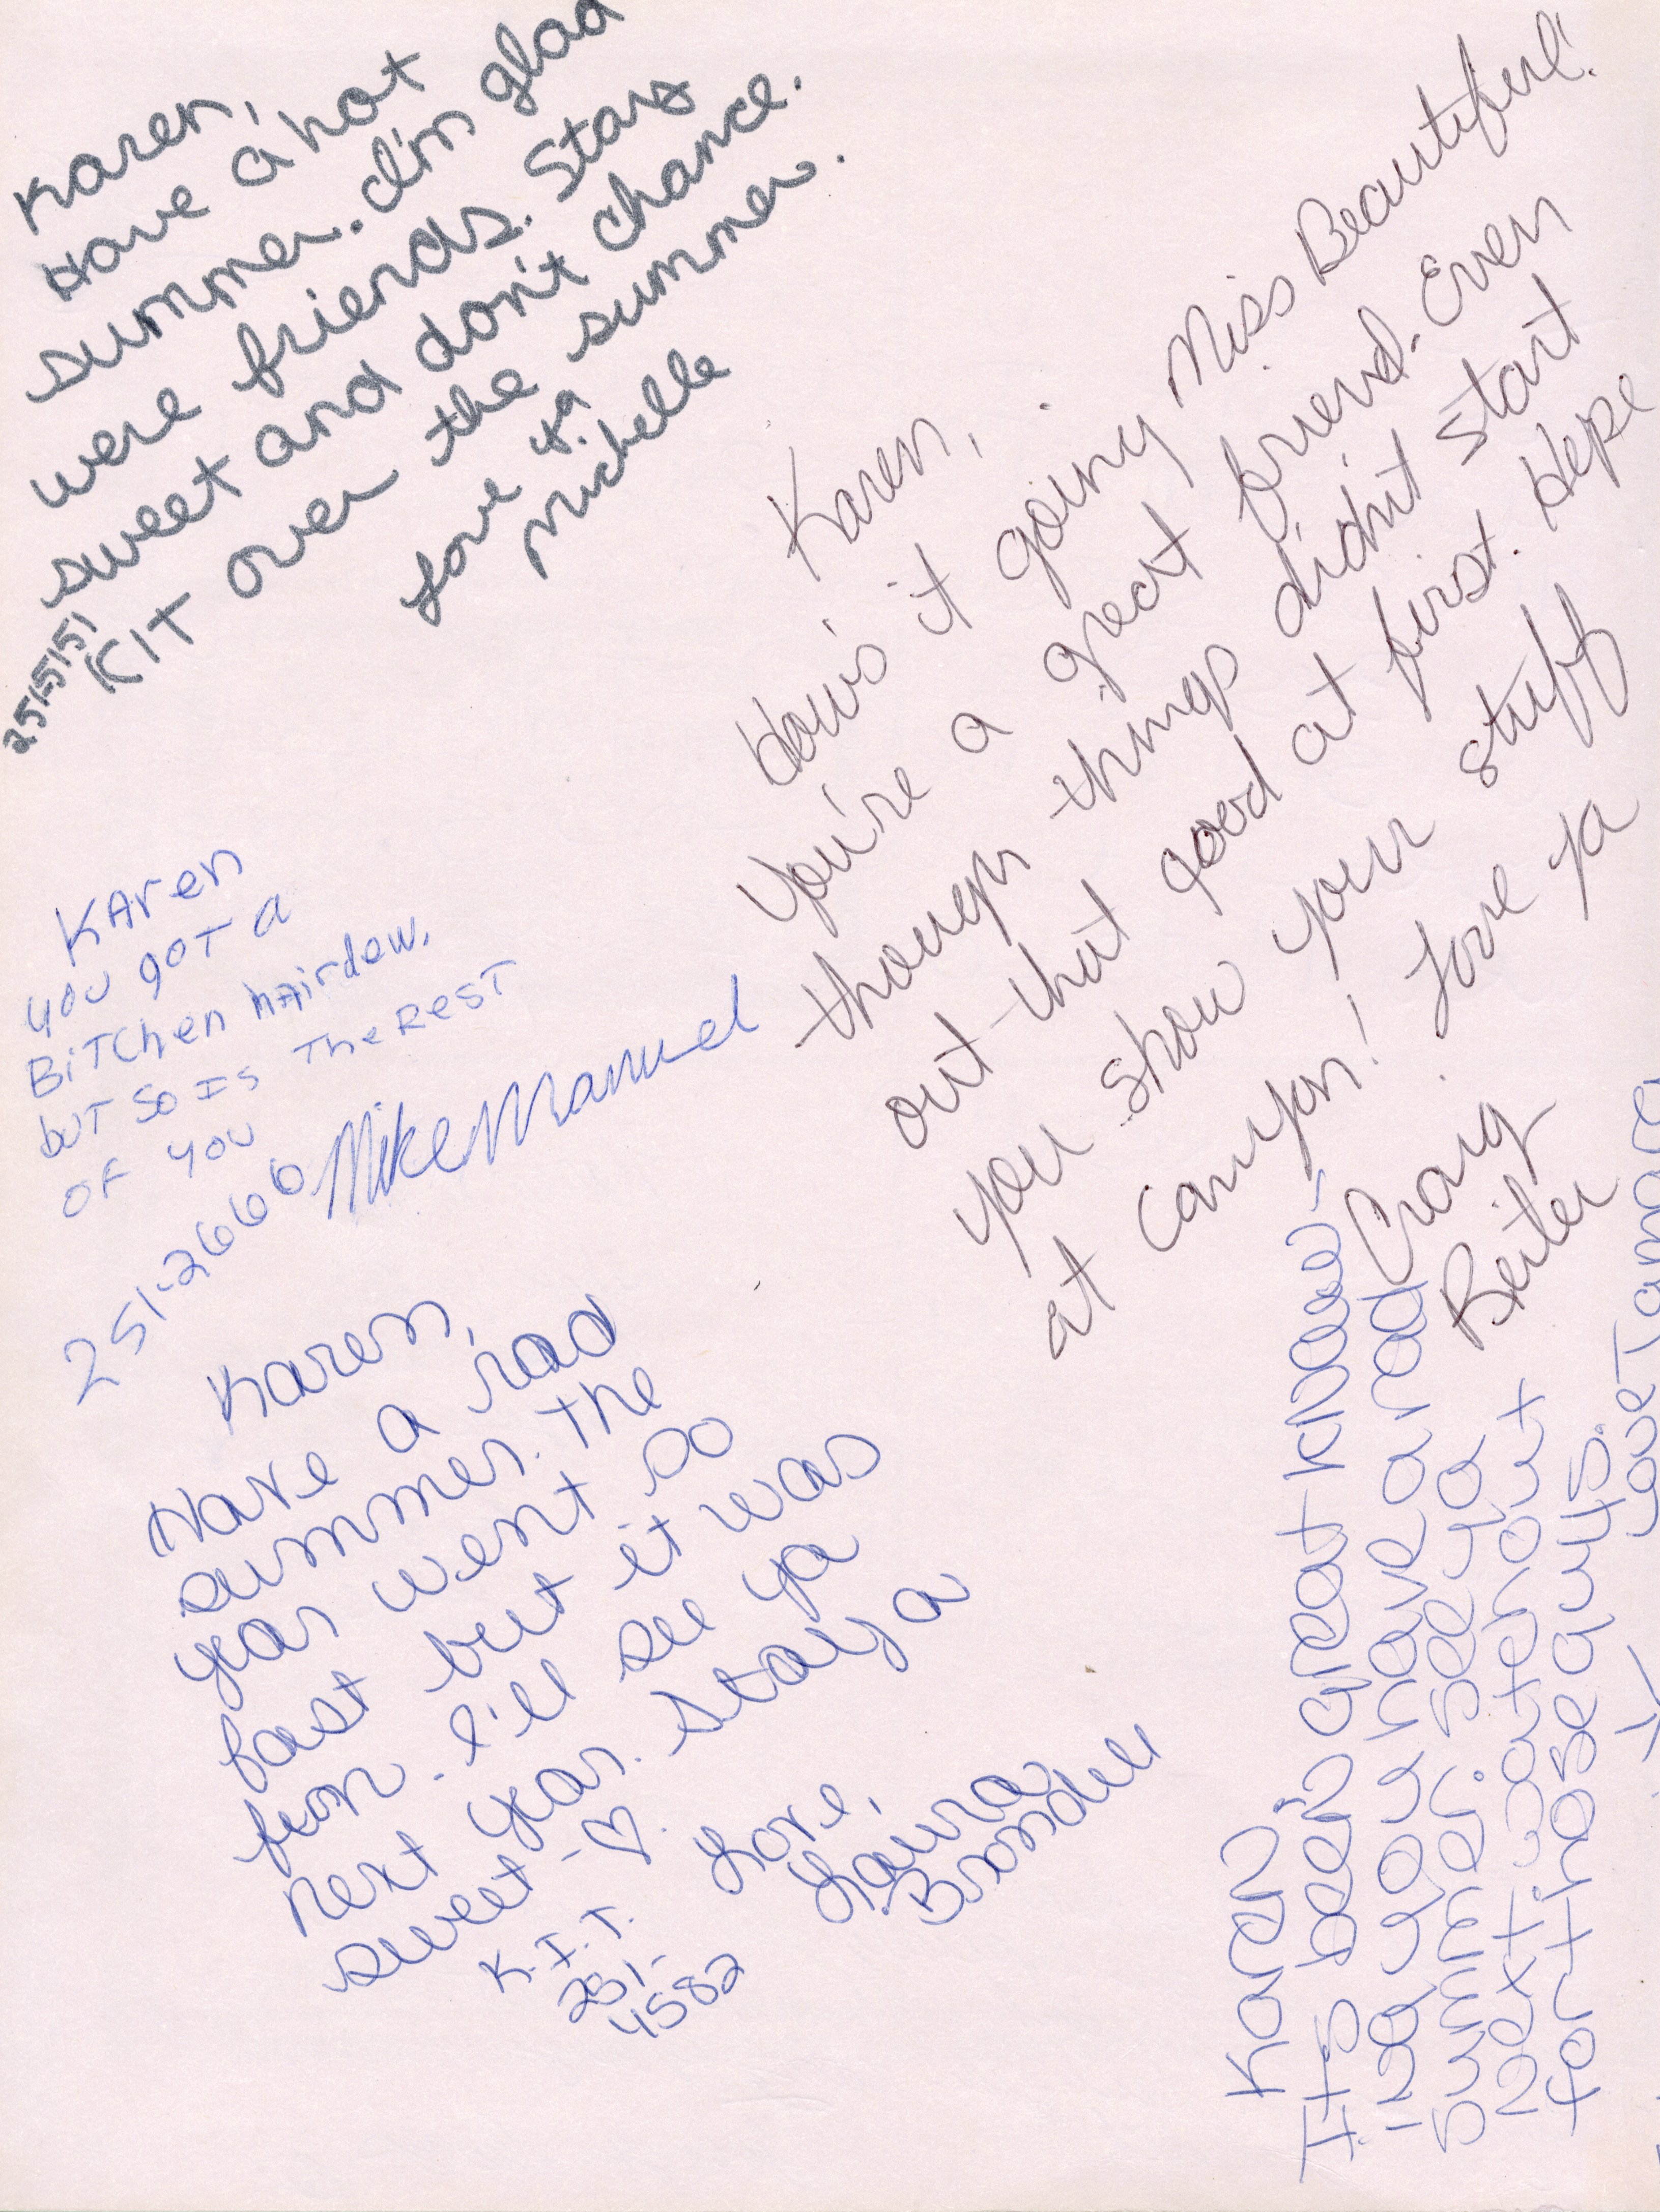 Karen,
Have a hot
summer. I'm glad
were friends. Stay
sweet and don't chance.
KIT over the summer.
Love ya
Michelle
251-5151
Karen,
How's it going Miss Beautiful!
You're a great friend. Even
though things didn't start
out that good at first. Hope
you show your stuff
at Canyon! Love ya
Craig
Beiter
KAren
you goT a
BiTChen hAirdew.
buT So Is The ResT
OF you
251-2666 Mike Manuel
Karen,
Have a rad
summer. The
year went so
fast but it was
fun. I'll see ya
next year. Stay a
sweet-♡.
K.I.T.
251-
4582
Love,
Laura
Brondell
Karen
It's been great know-
ing you have a rad
summer. see ya
next. watch out
for those guys.
Love Tamara